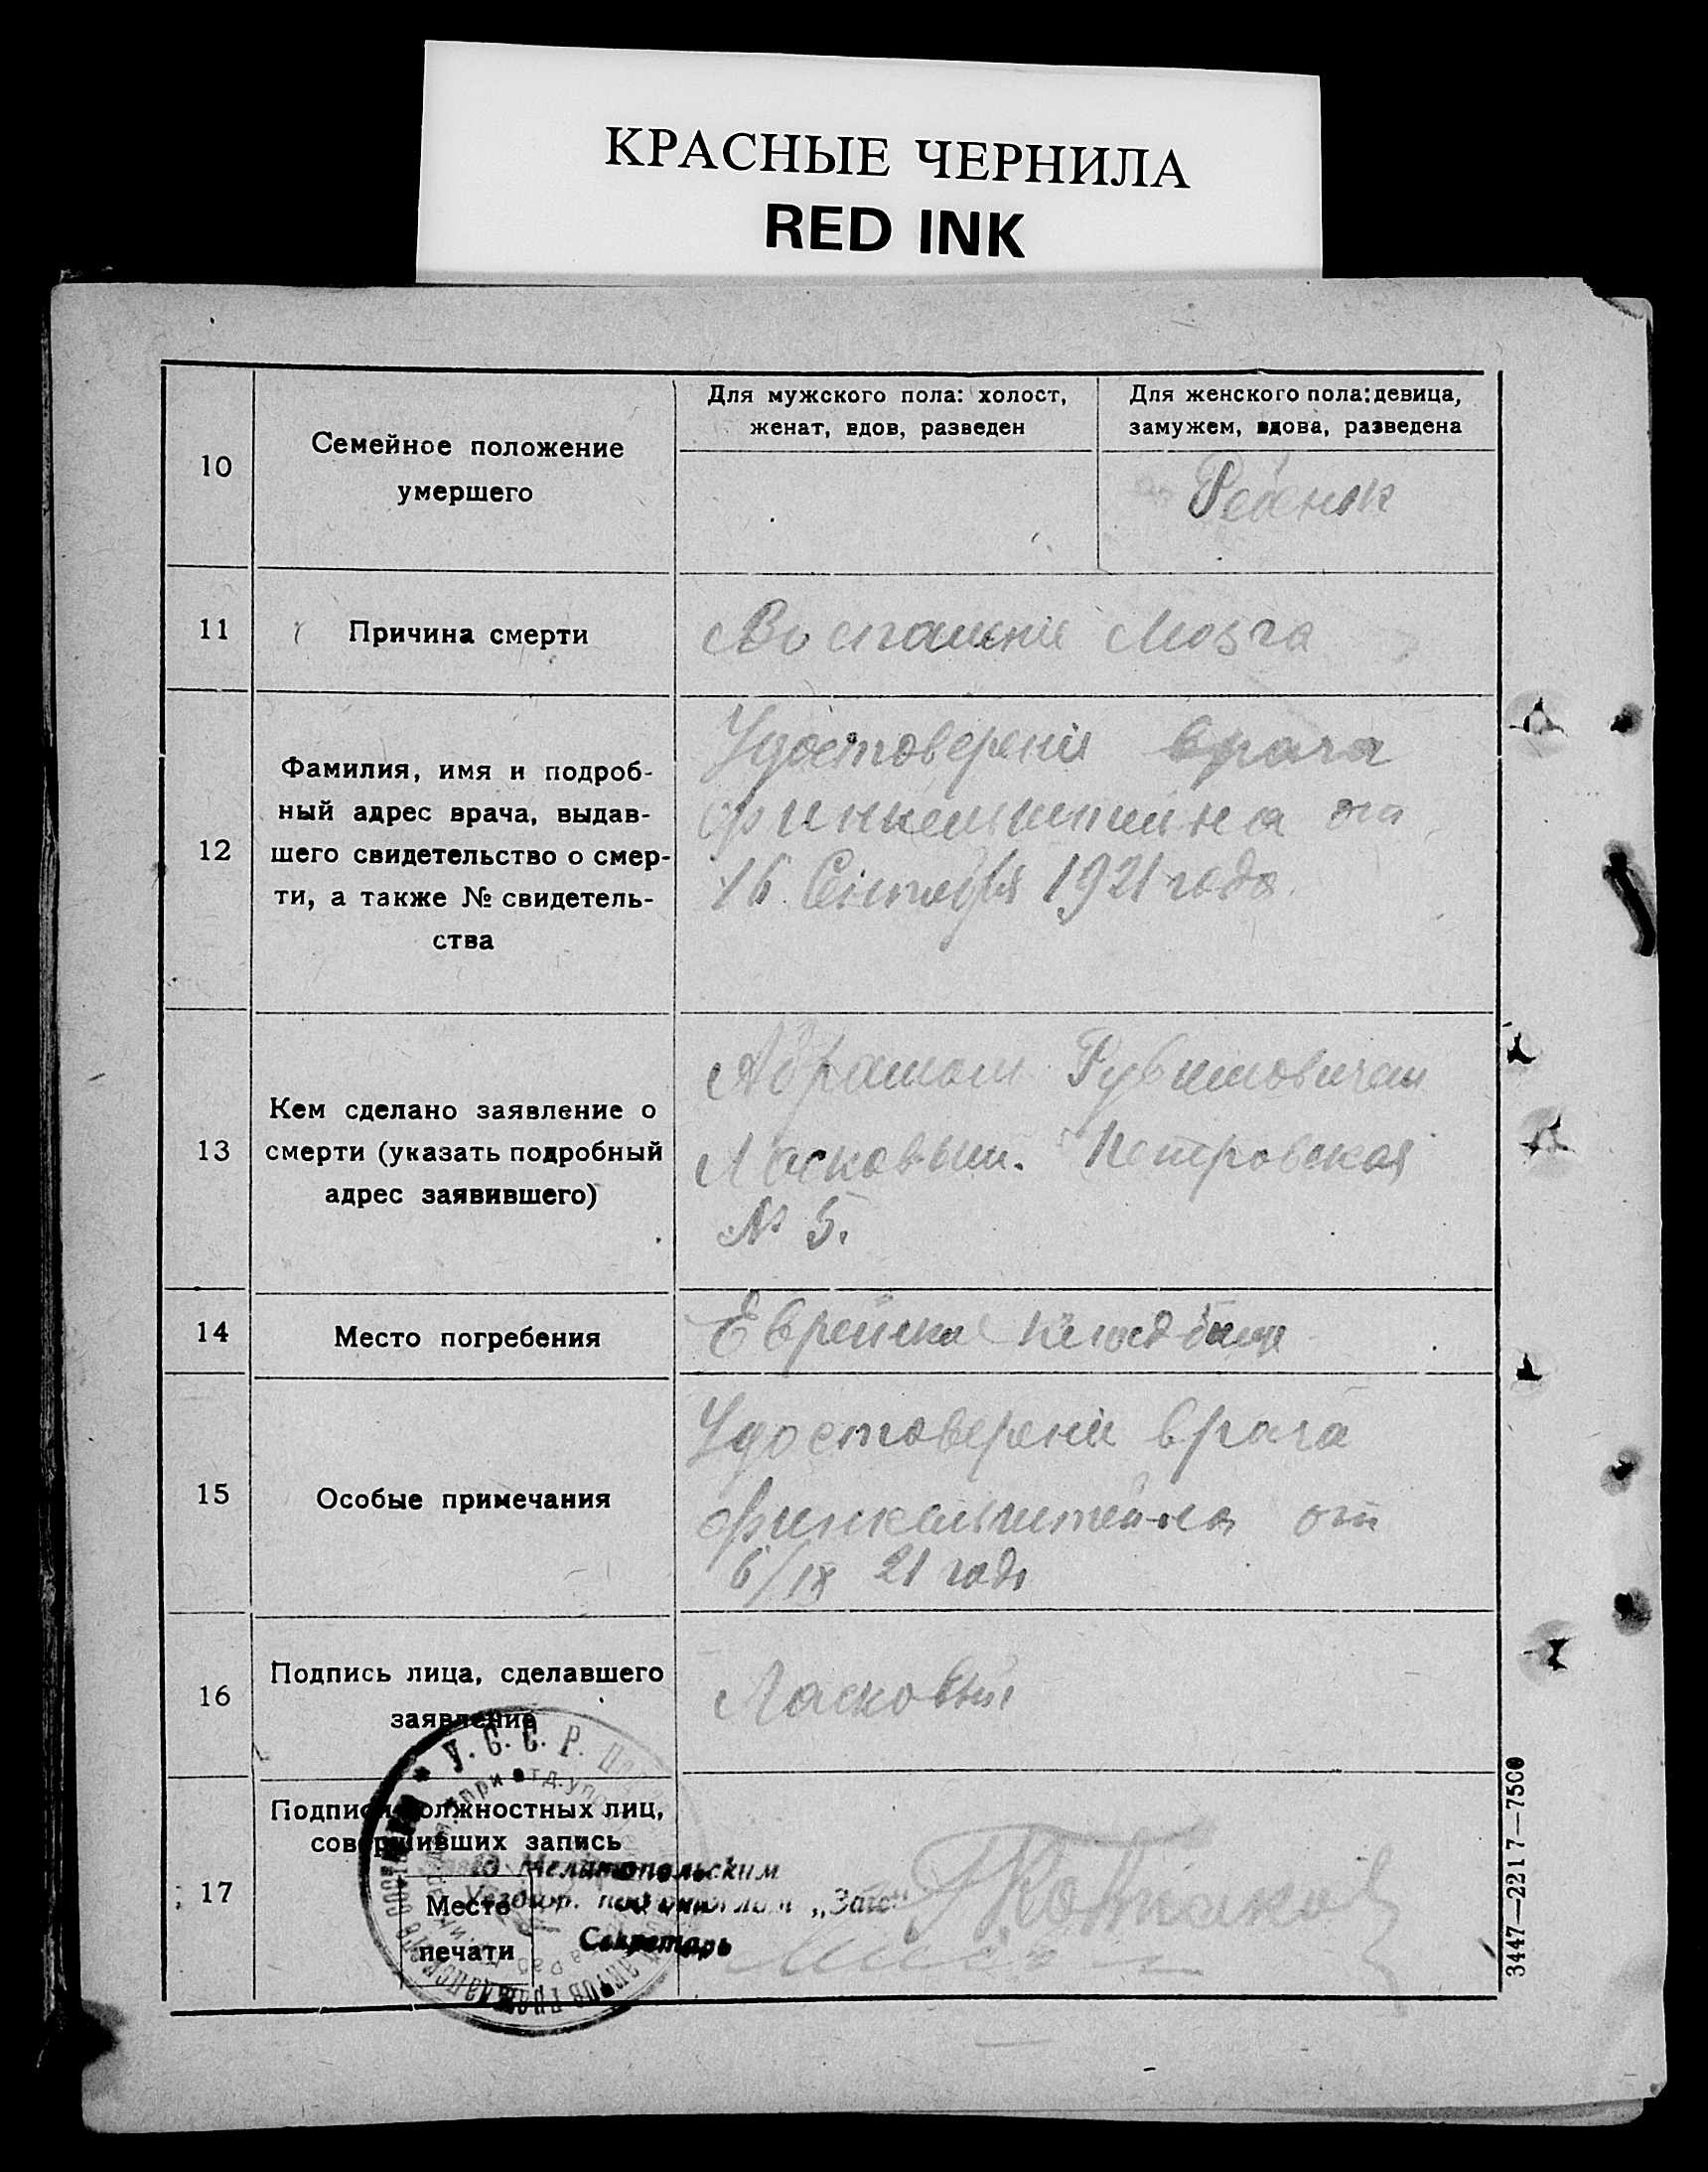 КРАСНЫЕ ЧЕРНИЛА
RED INK
10
Семейное положение
умершего
Для мужского пола: холост,
женат, вдов, разведен
Для женского пола: девица,
замужем, вдова, разведена
Ребенок
11
Причина смерти
Воспаление Мозга
12
Фамилия, имя и подроб-
ный адрес врача, выдав-
шего свидетельство о смер-
ти, а также № свидетель-
ства
Удостоверенія врача
финкельштейна от
16 Сентября 1921 года
13
Кем сделано заявление о
смерти (указать подробный
адрес заявившего)
Абрамом Рувимовичем
Ласковым. Петровская
№ 5.
14
Место погребения
Еврейское кладбище
15
Особые примечания
Удостоверение врача
финкельштейна от
6/IX 21 года
16
Подпись лица, сделавшего
заявление
Ласковый
17
Подписи должностных лиц,
совершивших запись
Место
печати
У. С. С. Р.
при отд. упр
Мелитопольским
Секретарь
3447—2217—7500